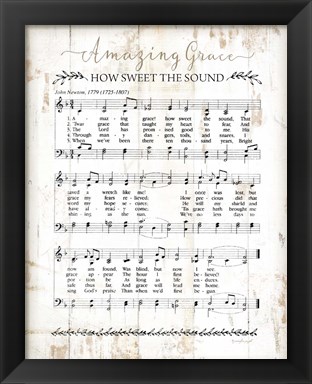 Amazing Grace
HOW SWEET THE SOUND
John Newton, 1779 (1725-1807)
1. A - maz - ing grace! how sweet the sound, That
2. 'Twas grace that taught my heart to fear, And
3. The Lord has prom - ised good to me. His
4. Through man - y dan - gers, toils, and snares, I
5. When we've been there ten thou - sand years, Bright
saved a wretch like me! I once was lost, but
grace my fears re - lieved; How pre - cious did that
word my hope se - cures; He will my shield and
have al - read - y come; 'Tis grace hath brought me
shin - ing as the sun. We've no less days to
now am found, Was blind, but now I see.
grace ap - pear The hour I first be - lieved!
por - tion be As long as life en - dures.
safe thus far, And grace will lead me home.
sing God's praise Than when we'd first be - gun.